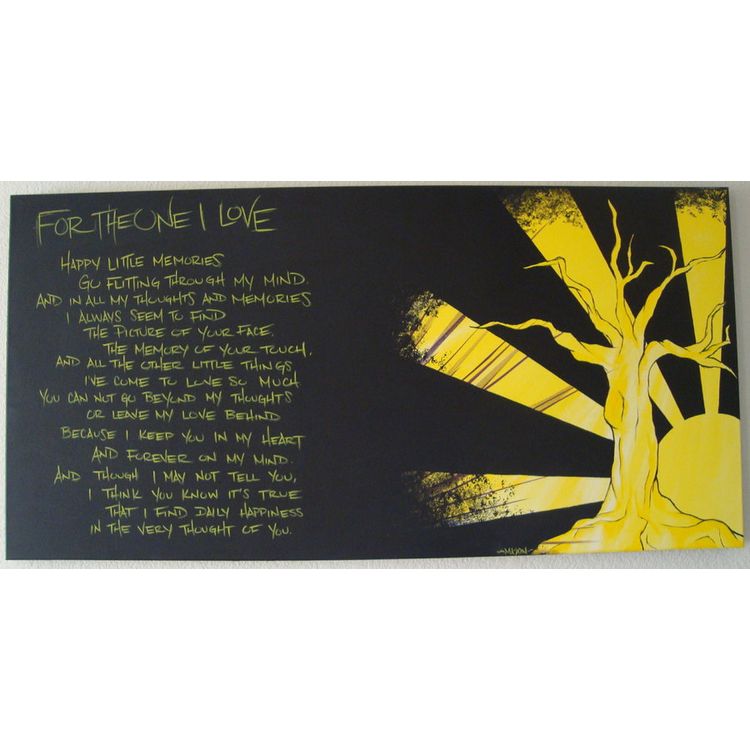 FOR THE ONE I LOVE
HAPPY LITTLE MEMORIES
GO FLITTING THROUGH MY MIND.
AND IN ALL MY THOUGHTS AND MEMORIES
I ALWAYS SEEM TO FIND
THE PICTURE OF YOUR FACE,
THE MEMORY OF YOUR TOUCH,
AND ALL THE OTHER LITTLE THINGS
I'VE COME TO LOVE SO MUCH
YOU CAN NOT GO BEYOND MY THOUGHTS
OR LEAVE MY LOVE BEHIND
BECAUSE I KEEP YOU IN MY HEART
AND FOREVER ON MY MIND.
AND THOUGH I MAY NOT TELL YOU,
I THINK YOU KNOW IT'S TRUE
THAT I FIND DAILY HAPPINESS
IN THE VERY THOUGHT OF YOU.